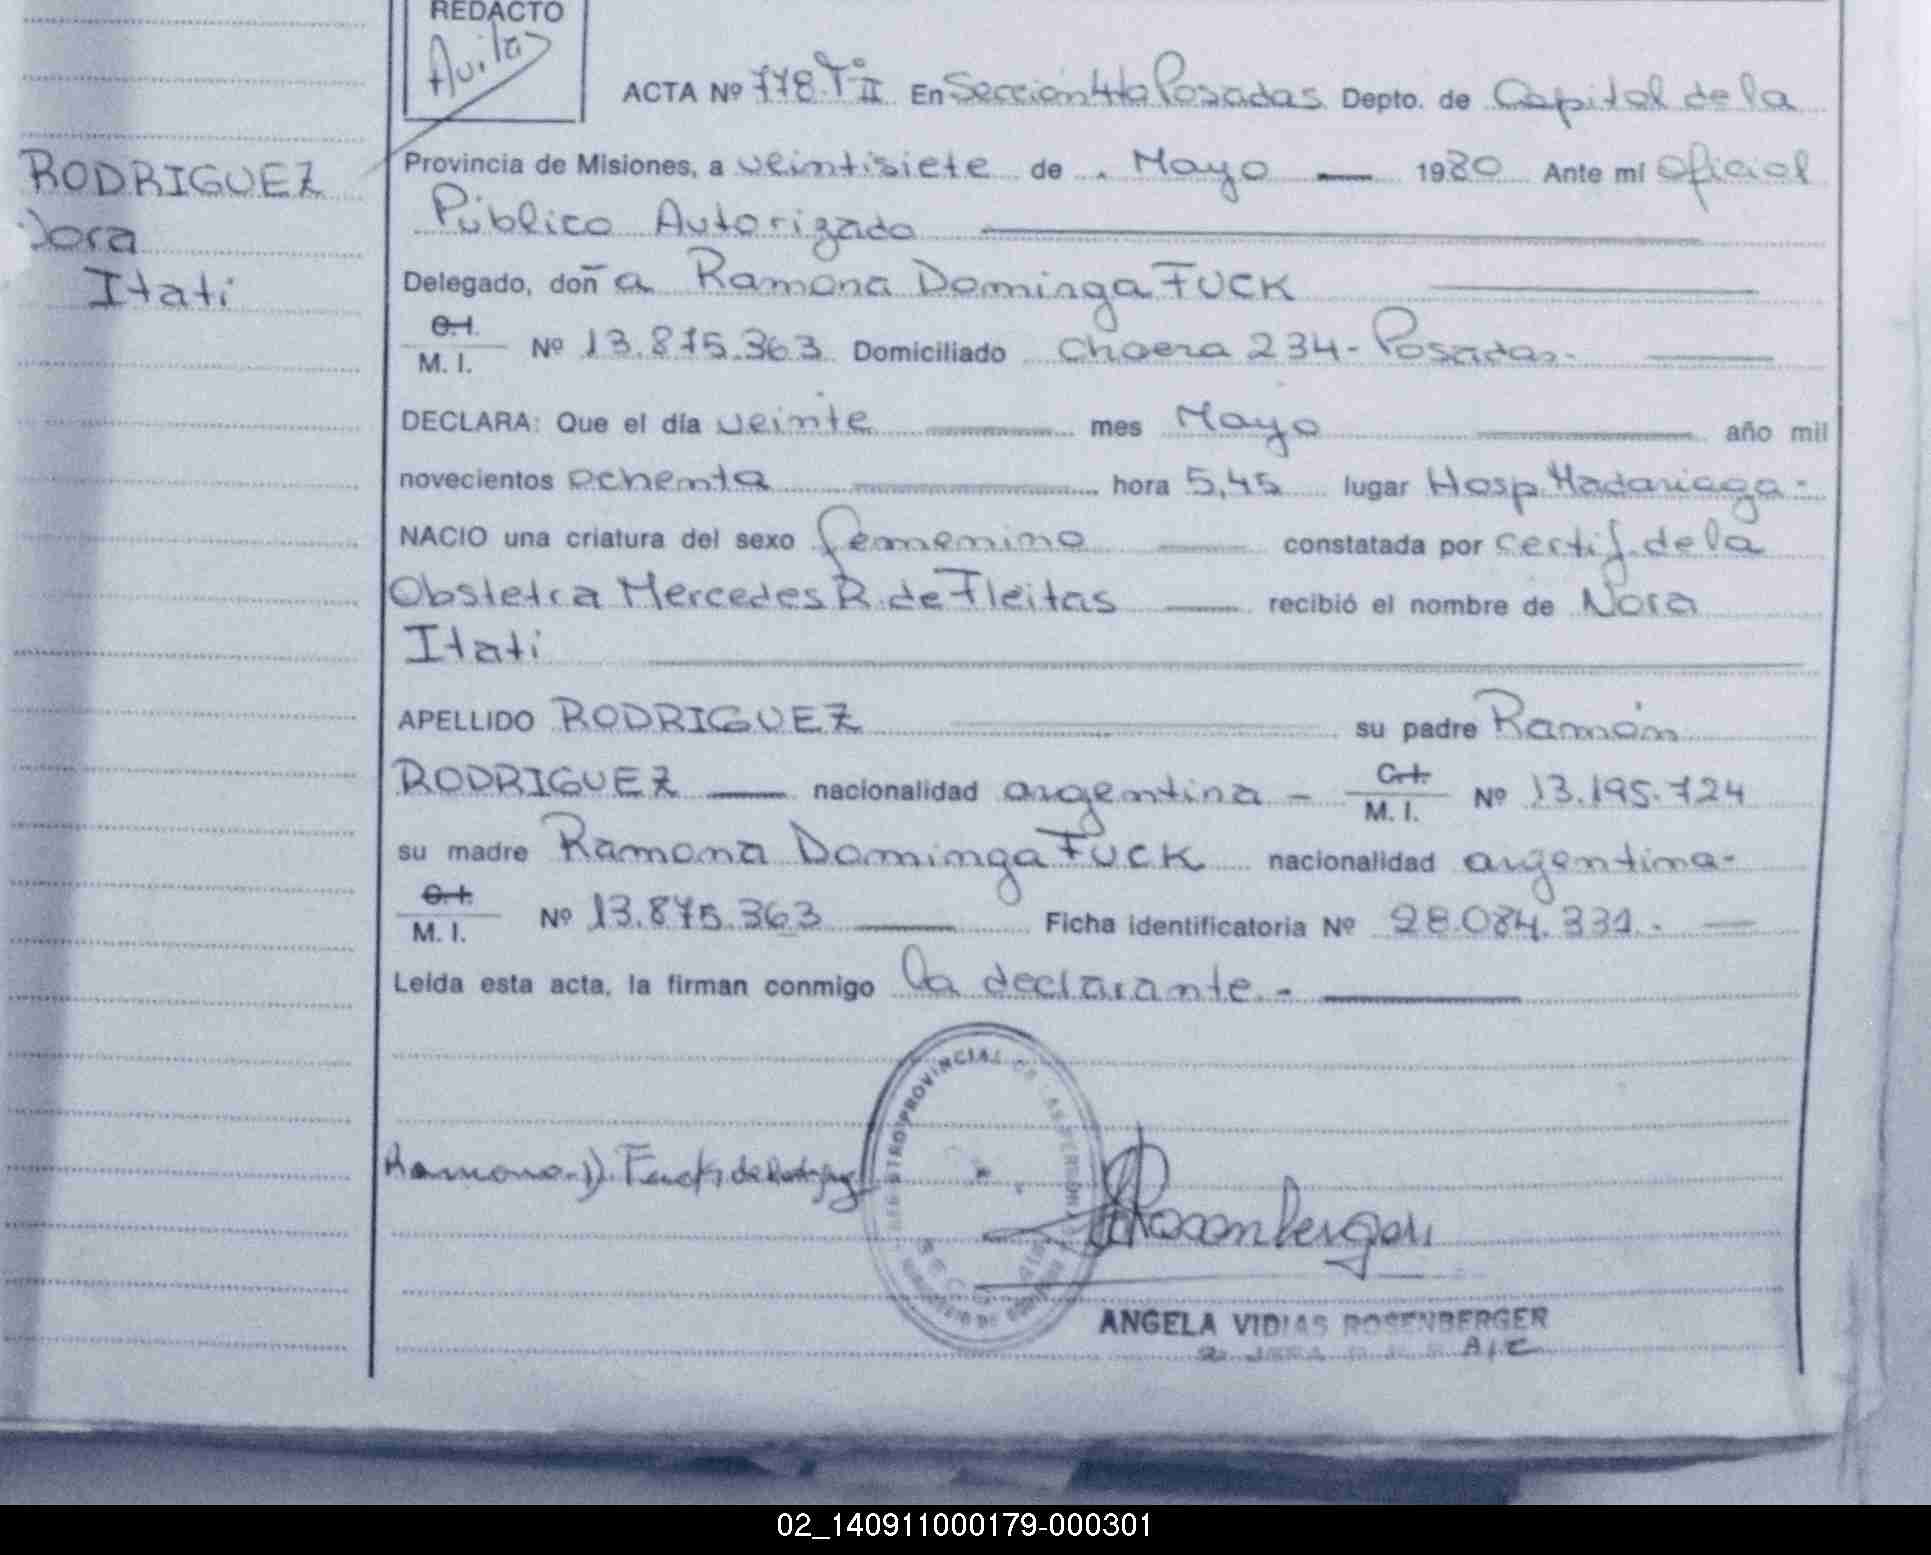 REDACTO
Avitas
ACTA Nº 778 Tº II En Sección 4ta Posadas Depto. de Capital de la
Provincia de Misiones, a veintisiete de Mayo 1980 Ante mí Oficial
Público Autorizado
Delegado, doña Ramona Dominga FUCK
C.I.
M. I. Nº 13.875.363 Domiciliado Chacra 234 - Posadas.
DECLARA: Que el día veinte mes Mayo año mil
novecientos ochenta hora 5,45 lugar Hosp. Madariaga -
NACIO una criatura del sexo femenino constatada por certif. de la
Obstetra Mercedes R. de Fleitas recibió el nombre de Nora
Itati
APELLIDO RODRIGUEZ su padre Ramón
RODRIGUEZ nacionalidad argentina - C.I.
M. I. Nº 13.195.724
su madre Ramona Dominga FUCK nacionalidad argentina-
C.I.
M. I. Nº 13.875.363 Ficha identificatoria Nº 28.084.331.
Leída esta acta, la firman conmigo la declarante. -
RODRIGUEZ
Nora
Itati
Ramona D. Fuck de Rodriguez
REGISTRO PROVINCIAL DE LAS PERSONAS
Rosenberger
ANGELA VIDIAS ROSENBERGER
A/C
02_140911000179-000301